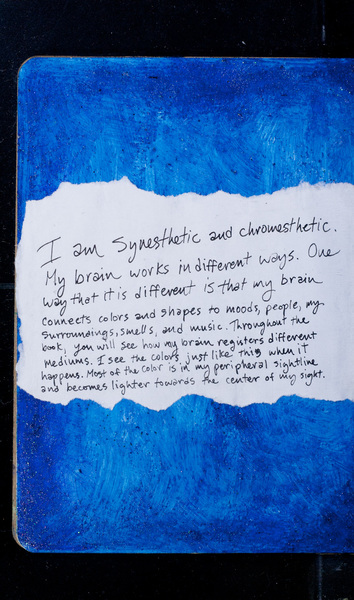 I am Synesthetic and chromesthetic.
My brain works in different ways. One
way that it is different is that my brain
connects colors and shapes to moods, people, my
surroundings, smells, and music. Throughout the
book, you will see how my brain registers different
mediums. I see the colors just like this when it
happens. Most of the color is in my peripheral sightline
and becomes lighter towards the center of my sight.